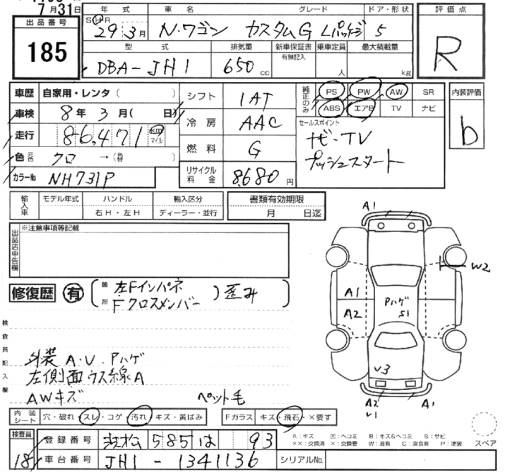 7月31日
出品番号
185
年式 車名 グレード ドア・形状
29年3月 N・ワゴン カスタムG Lパッケージ 5
型式 排気量 新車保証書 有無記入 乗車定員 最大積載量
DBA-JH1 650cc 人 kg
評価点
R
内装評価
b
車歴 自家用・レンタ( )
車検 8年3月( 日)
走行 86,471 km マイル
色 クロ→( )
カラーNo NH731P
シフト 1AT
冷房 AAC
燃料 G
リサイクル料金 8,680円
純正のみ PS PW AW SR
ABS エアB TV ナビ
セールスポイント
ナビ・TV
プッシュスタート
輸入車 モデル年式 ハンドル 輸入区分
右H・左H ディーラー・並行
書類有効期限
月 日迄
出品店申告欄
※注意事項等記載
修復歴 有
左Fインパネ
Fクロスメンバー
歪み
検査員記入欄
外装 A・U・Pハゲ
左側面ウス線A
AWキズ
ペット毛
A1
W2
A1
A2
Pハゲ
S1
U3
A2
U1
A1
内装シート 穴・破れ・スレ・コゲ・汚れ・キズ・黄ばみ Fガラス キズ・飛石・×要す
A:キズ U:ヘコミ B:キズ&ヘコミ S:サビ
スペア
検査員
181
登録番号 585は 93
車台番号 JH1-1341136
シリアルNo.